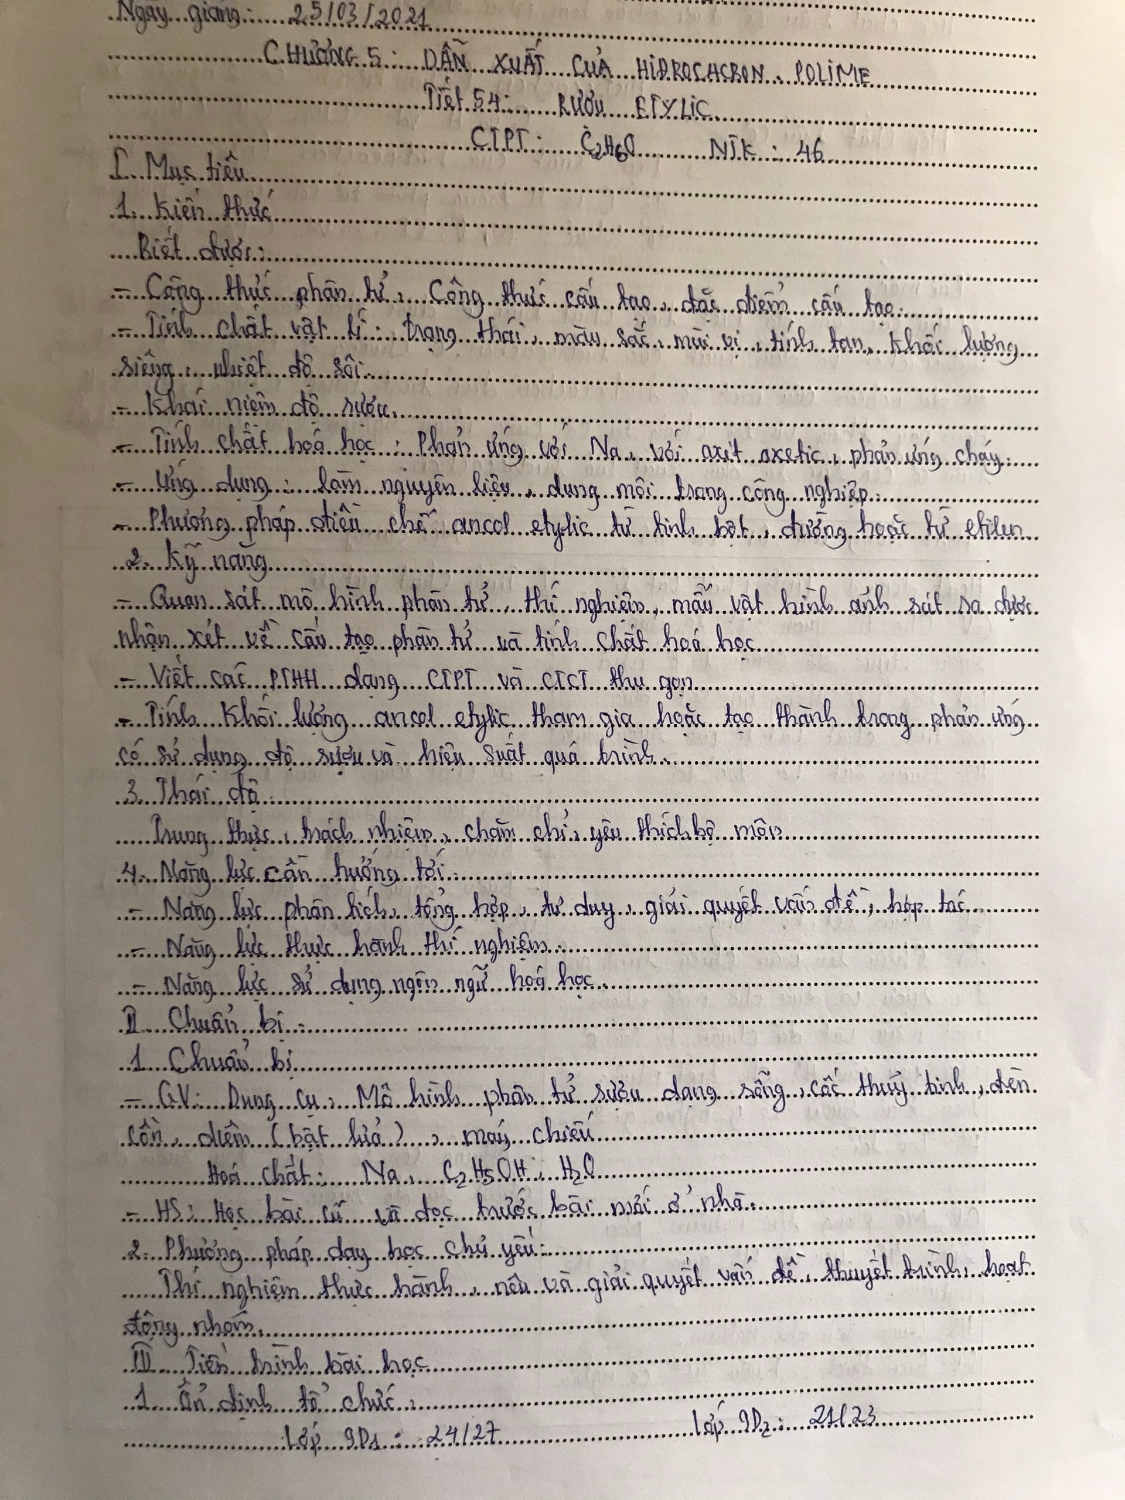 Ngày giảng: 25/03/2021
CHƯƠNG 5: DẪN XUẤT CỦA HIĐROCACBON. POLIME
Tiết 54: RƯỢU ETYLIC
CTPT: C2H6O NTK: 46
I. Mục tiêu
1. Kiến thức
Biết được:
- Công thức phân tử, Công thức cấu tạo, đặc điểm cấu tạo.
- Tính chất vật lí: trạng thái, màu sắc, mùi vị, tính tan, khối lượng
riêng, nhiệt độ sôi.
- Khái niệm độ rượu.
- Tính chất hoá học: Phản ứng với Na, với axit axetic, phản ứng cháy.
- Ứng dụng: làm nguyên liệu, dung môi trong công nghiệp.
- Phương pháp điều chế ancol etylic từ tinh bột, đường hoặc từ etilen
2. Kỹ năng
- Quan sát mô hình phân tử, thí nghiệm, mẫu vật hình ảnh rút ra được
nhận xét về cấu tạo phân tử và tính chất hoá học
- Viết các PTHH dạng CTPT và CTCT thu gọn
- Tính khối lượng ancol etylic tham gia hoặc tạo thành trong phản ứng
có sử dụng độ rượu và hiệu suất quá trình.
3. Thái độ
Trung thực, trách nhiệm, chăm chỉ, yêu thích bộ môn
4. Năng lực cần hướng tới.
- Năng lực phân tích, tổng hợp, tư duy, giải quyết vấn đề, hợp tác
- Năng lực thực hành thí nghiệm.
- Năng lực sử dụng ngôn ngữ hoá học.
II. Chuẩn bị.
1. Chuẩn bị
- GV: Dụng cụ, Mô hình phân tử rượu dạng rỗng, cốc thuỷ tinh, đèn
cồn, diêm (bật lửa), máy chiếu
Hoá chất: Na, C2H5OH, H2O
- HS: Học bài cũ và đọc trước bài mới ở nhà.
2. Phương pháp dạy học chủ yếu.
Thí nghiệm thực hành, nêu và giải quyết vấn đề, thuyết trình, hoạt
động nhóm.
III. Tiến trình bài học
1. Ổn định tổ chức.
Lớp 9D1: 24/27 Lớp 9D2: 21/23